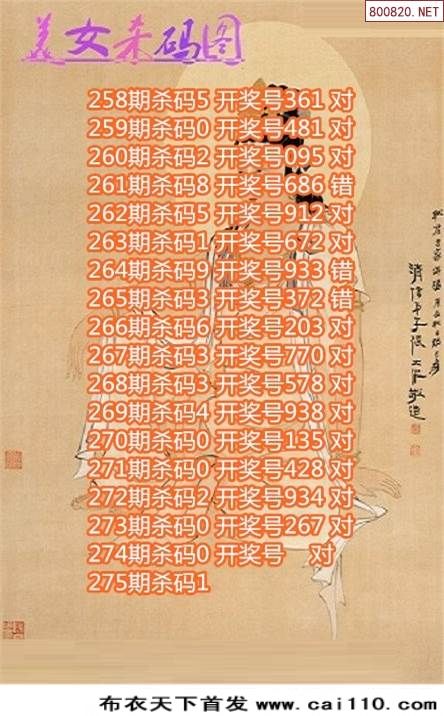 800820.NET
美女杀码图
258期杀码5 开奖号361 对
259期杀码0 开奖号481 对
260期杀码2 开奖号095 对
261期杀码8 开奖号686 错
262期杀码5 开奖号912 对
263期杀码1 开奖号672 对
264期杀码9 开奖号933 错
265期杀码3 开奖号372 错
266期杀码6 开奖号203 对
267期杀码3 开奖号770 对
268期杀码3 开奖号578 对
269期杀码4 开奖号938 对
270期杀码0 开奖号135 对
271期杀码0 开奖号428 对
272期杀码2 开奖号934 对
273期杀码0 开奖号267 对
274期杀码0 开奖号 对
275期杀码1
布衣天下首发 www.cai110.com